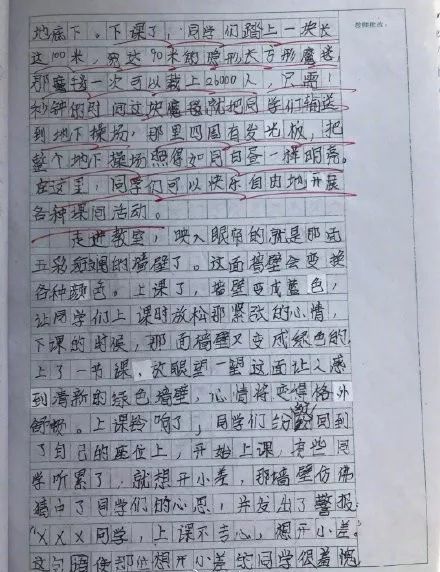 教师批改：
地底下。下课了，同学们踏上一块长
这100米，宽达90米的隐形长方形魔毯，
那魔毯一次可以载上26000人，只需1
秒钟的时间这块魔毯就把同学们输送
到地下操场，那里四周有发光板，把
整个地下操场照得如同白昼一样明亮。
在这里，同学们可以快乐自由地开展
各种课间活动。
走进教室，映入眼帘的就是那面
五彩斑斓的墙壁了。这面墙壁会变换
各种颜色。上课了，墙壁变成蓝色，
让同学们上课时放松那紧张的心情，
下课的时候，那面墙壁又变成绿色的，
上了一节课，放眼望一望这面让人感
到清新的绿色墙壁，心情将变得格外
舒畅。上课铃响了，同学们纷纷回到
了自己的座位上，开始上课，有些同
学听累了，就想开小差，那墙壁仿佛
猜中了同学们的心思，并发出了警报：
“XXX同学，上课不专心，想开小差。”
这句话使那位想开小差的同学很羞愧